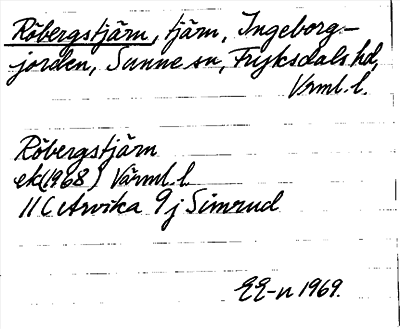 Röbergstjärn, tjärn, Ingeborg-
jorden, Sunne sn, Fryksdals hd,
Vrml. l.
Röbergstjärn
ek(1968) Värml. l.
11 C Arvika 9 j Simrud
EE-n 1969.